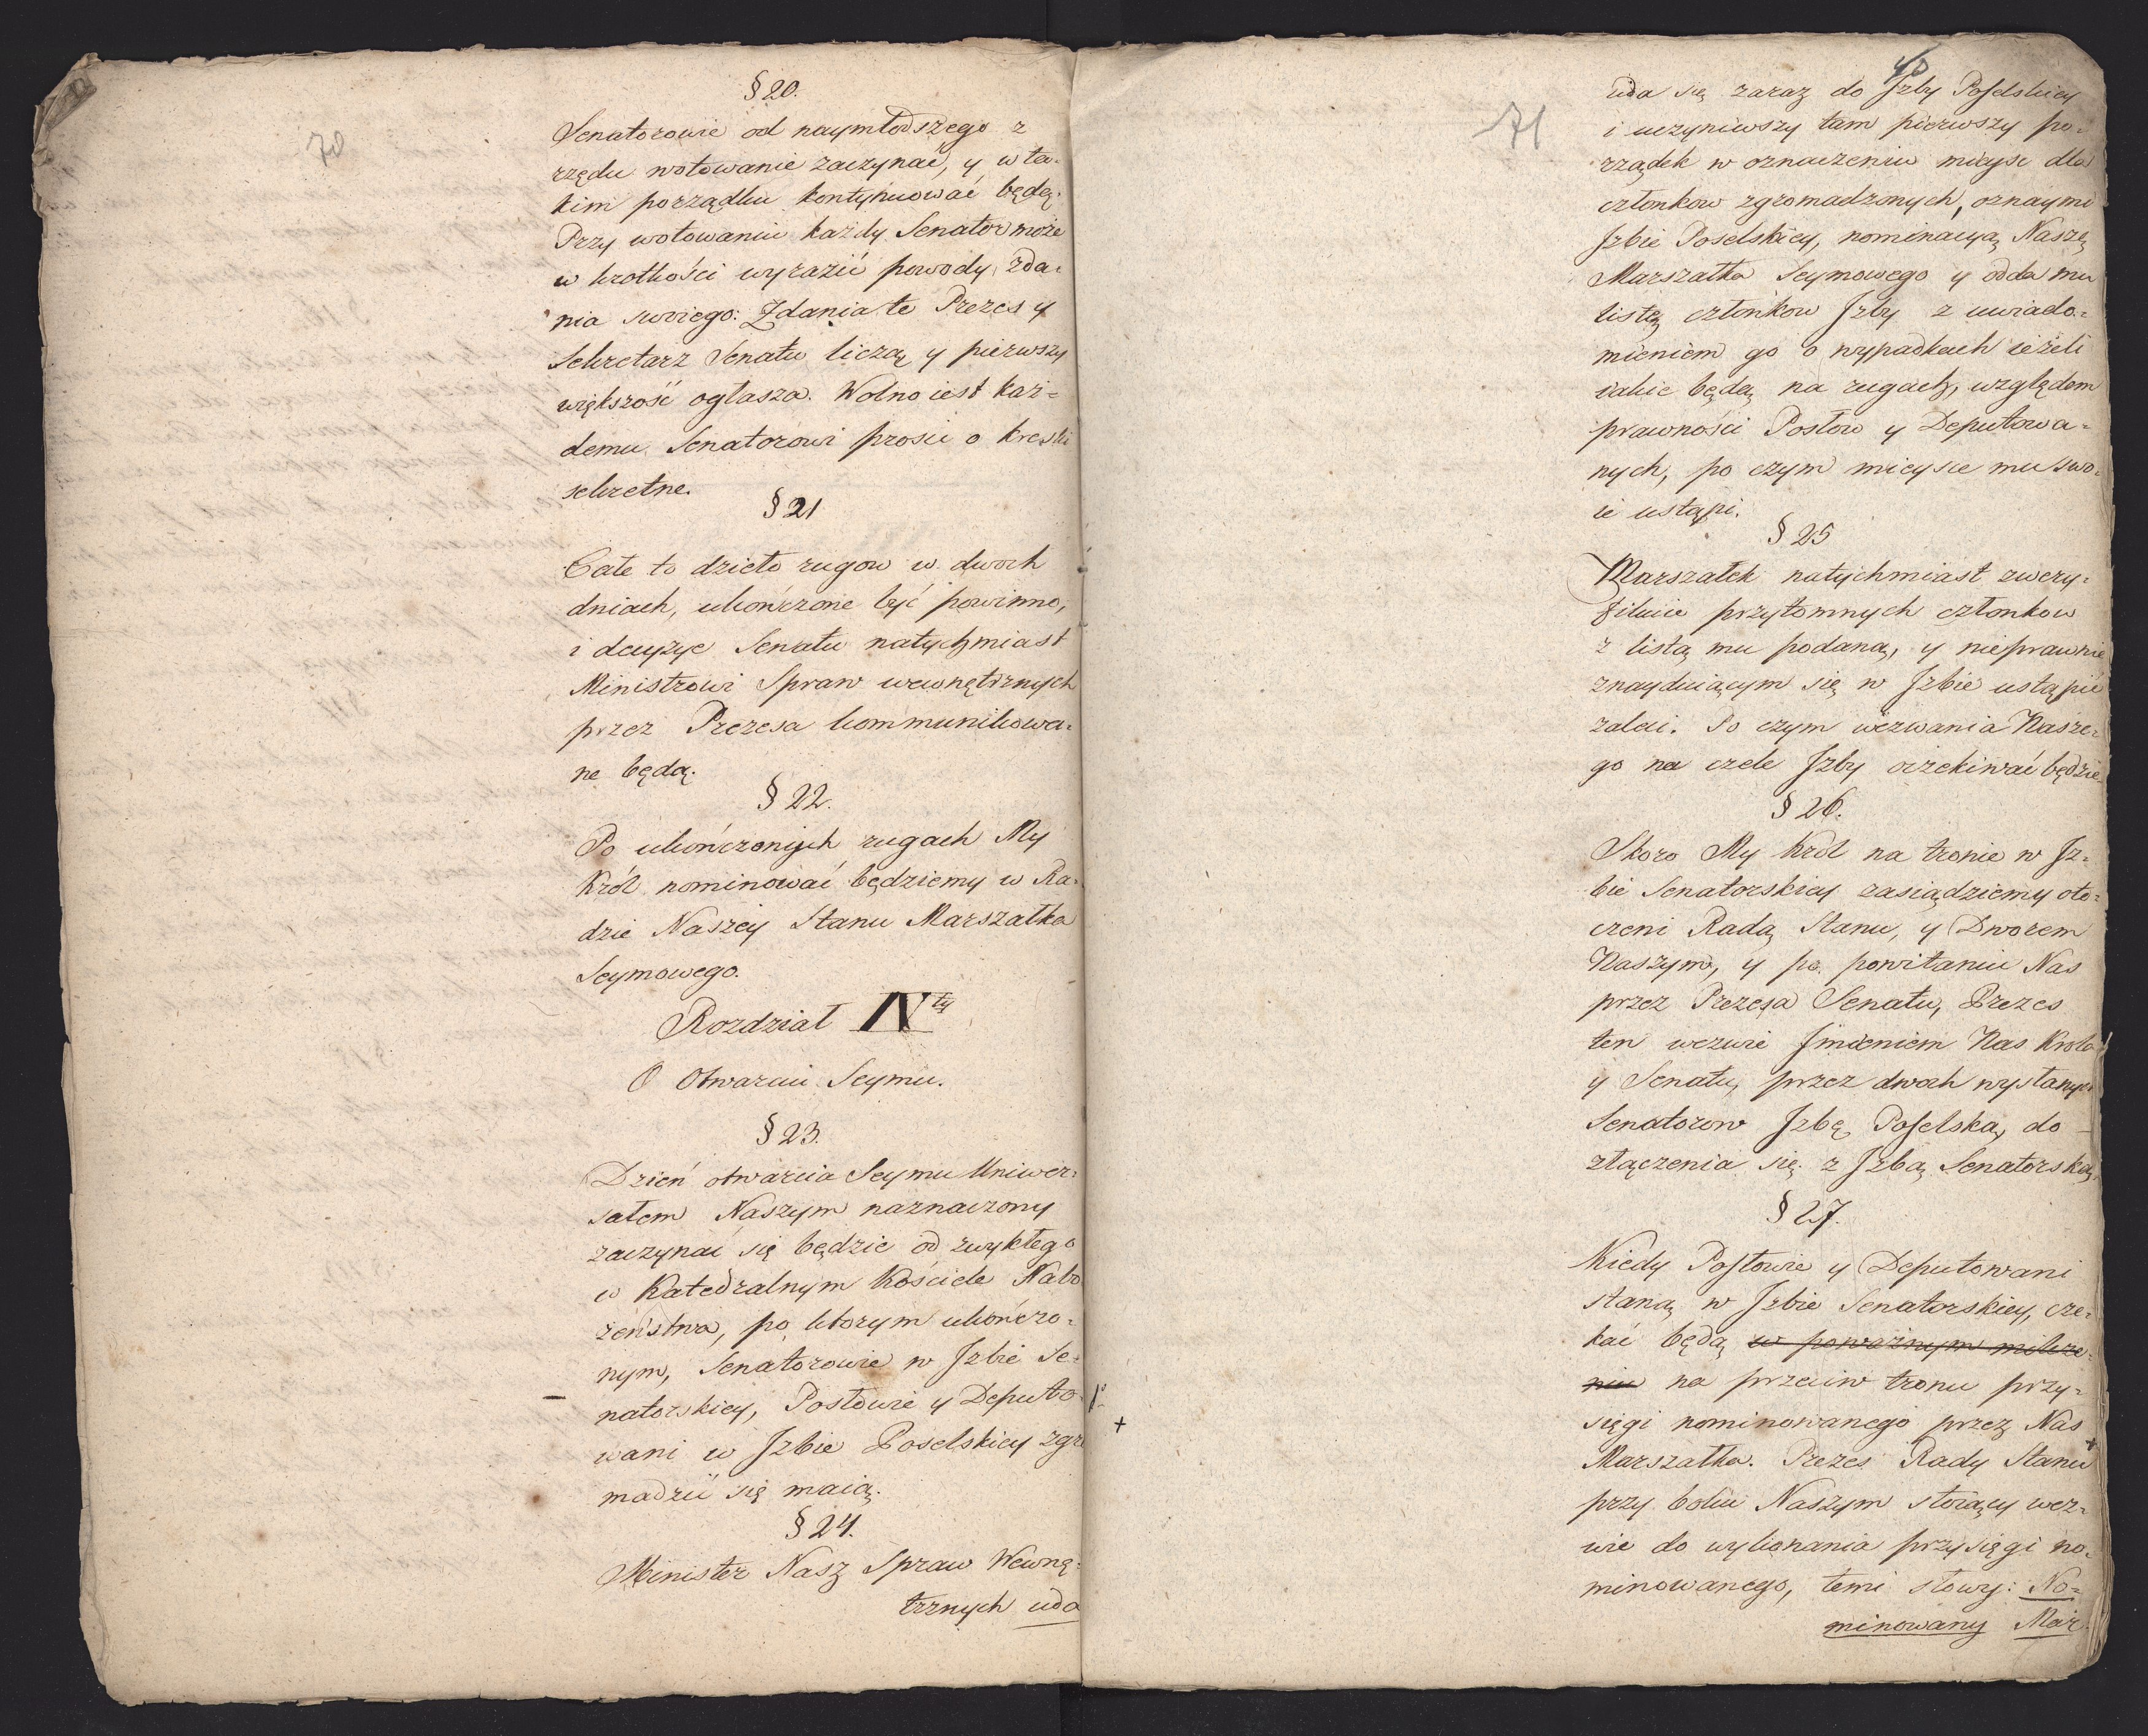 70
§ 20.
Senatorowie od naymłodszego z
rzędu wotowanie zaczynać, y w ta-
kim porządku kontynuować będą.
Przy wotowaniu każdy Senator może
w krotkości wyrazić powody zda-
nia swoiego: Zdania te Prezes y
Sekretarz Senatu liczą y pierwszy
większość ogłasza. Wolno iest każ=
demu Senatorowi prosić o kreski
sekretne.
§ 21
Całe to dzieło rugow w dwoch
dniach, ukończone być powinno,
i decyzye Senatu natychmiast
Ministrowi Spraw wewnętrznych
przez Prezesa kommunikowa-
ne będą.
§ 22.
Po ukończonych rugach My
Król nominować będziemy w Ra-
dzie Naszey Stanu Marszałka
Seymowego.
Rozdział IV ty
O Otwarciu Seymu.
§ 23.
Dzień otwarcia Seymu Uniwer-
sałem Naszym naznaczony
zaczynać się będzie od zwykłego
w Katedralnym Kościele Nabo
żeństwa, po ktorym ukończo-
nym, Senatorowie w Jzbie Se-
natorskiey, Posłowie y Deputo-
wani w Jzbie Poselskiey zgro
madzić się maią.
§ 24.
Minister Nasz Spraw Wewnę-
trznych uda
40
71
uda się zaraz do Jzby Poselskiey
i uczyniwszy tam pierwszy po-
rządek w oznaczeniu mieysc dla
członkow zgromadzonych, oznaymi
Jzbie Poselskiey, nominacyą Naszę
Marszałka Seymowego y odda mu
listę członkow Jzby z uwiado-
mieniem go o wypadkach ieżeli
iakie będą na rugach, względem
prawności Posłow y Deputowa-
nych, po czym mieysce mu swo-
ie ustąpi.
§ 25
Marszałek natychmiast zwery-
fikuie przytomnych członkow
z listą mu podaną, y nieprawnie
znayduiącym się w Jzbie ustąpić
zaleci. Po czym wezwania Nasze-
go na czele Jzby oczekiwać będzie
§ 26.
Skoro My Król na tronie w Jz-
bie Senatorskiey zasiądziemy oto-
czeni Radą Stanu, y Dworem
Naszym, y po powitaniu Nas
przez Prezesa Senatu, Prezes
ten wezwie Jmieniem Nas Krola
y Senatu, przez dwoch wysłanych
Senatorow Jzbę Poselską, do
złączenia się z Jzbą Senatorską
§ 27.
Kiedy Posłowie y Deputowani
staną w Jzbie Senatorskiey, cze-
kać będą w poważnym milcze-
niu na przeciw tronu przy-
sięgi nominowanego przez Nas
Marszałka. Prezes Rady Stanu
przy boku Naszym stoiący wez-
wie do wykonania przysięgi no-
minowanego, temi słowy: No-
minowany Mar